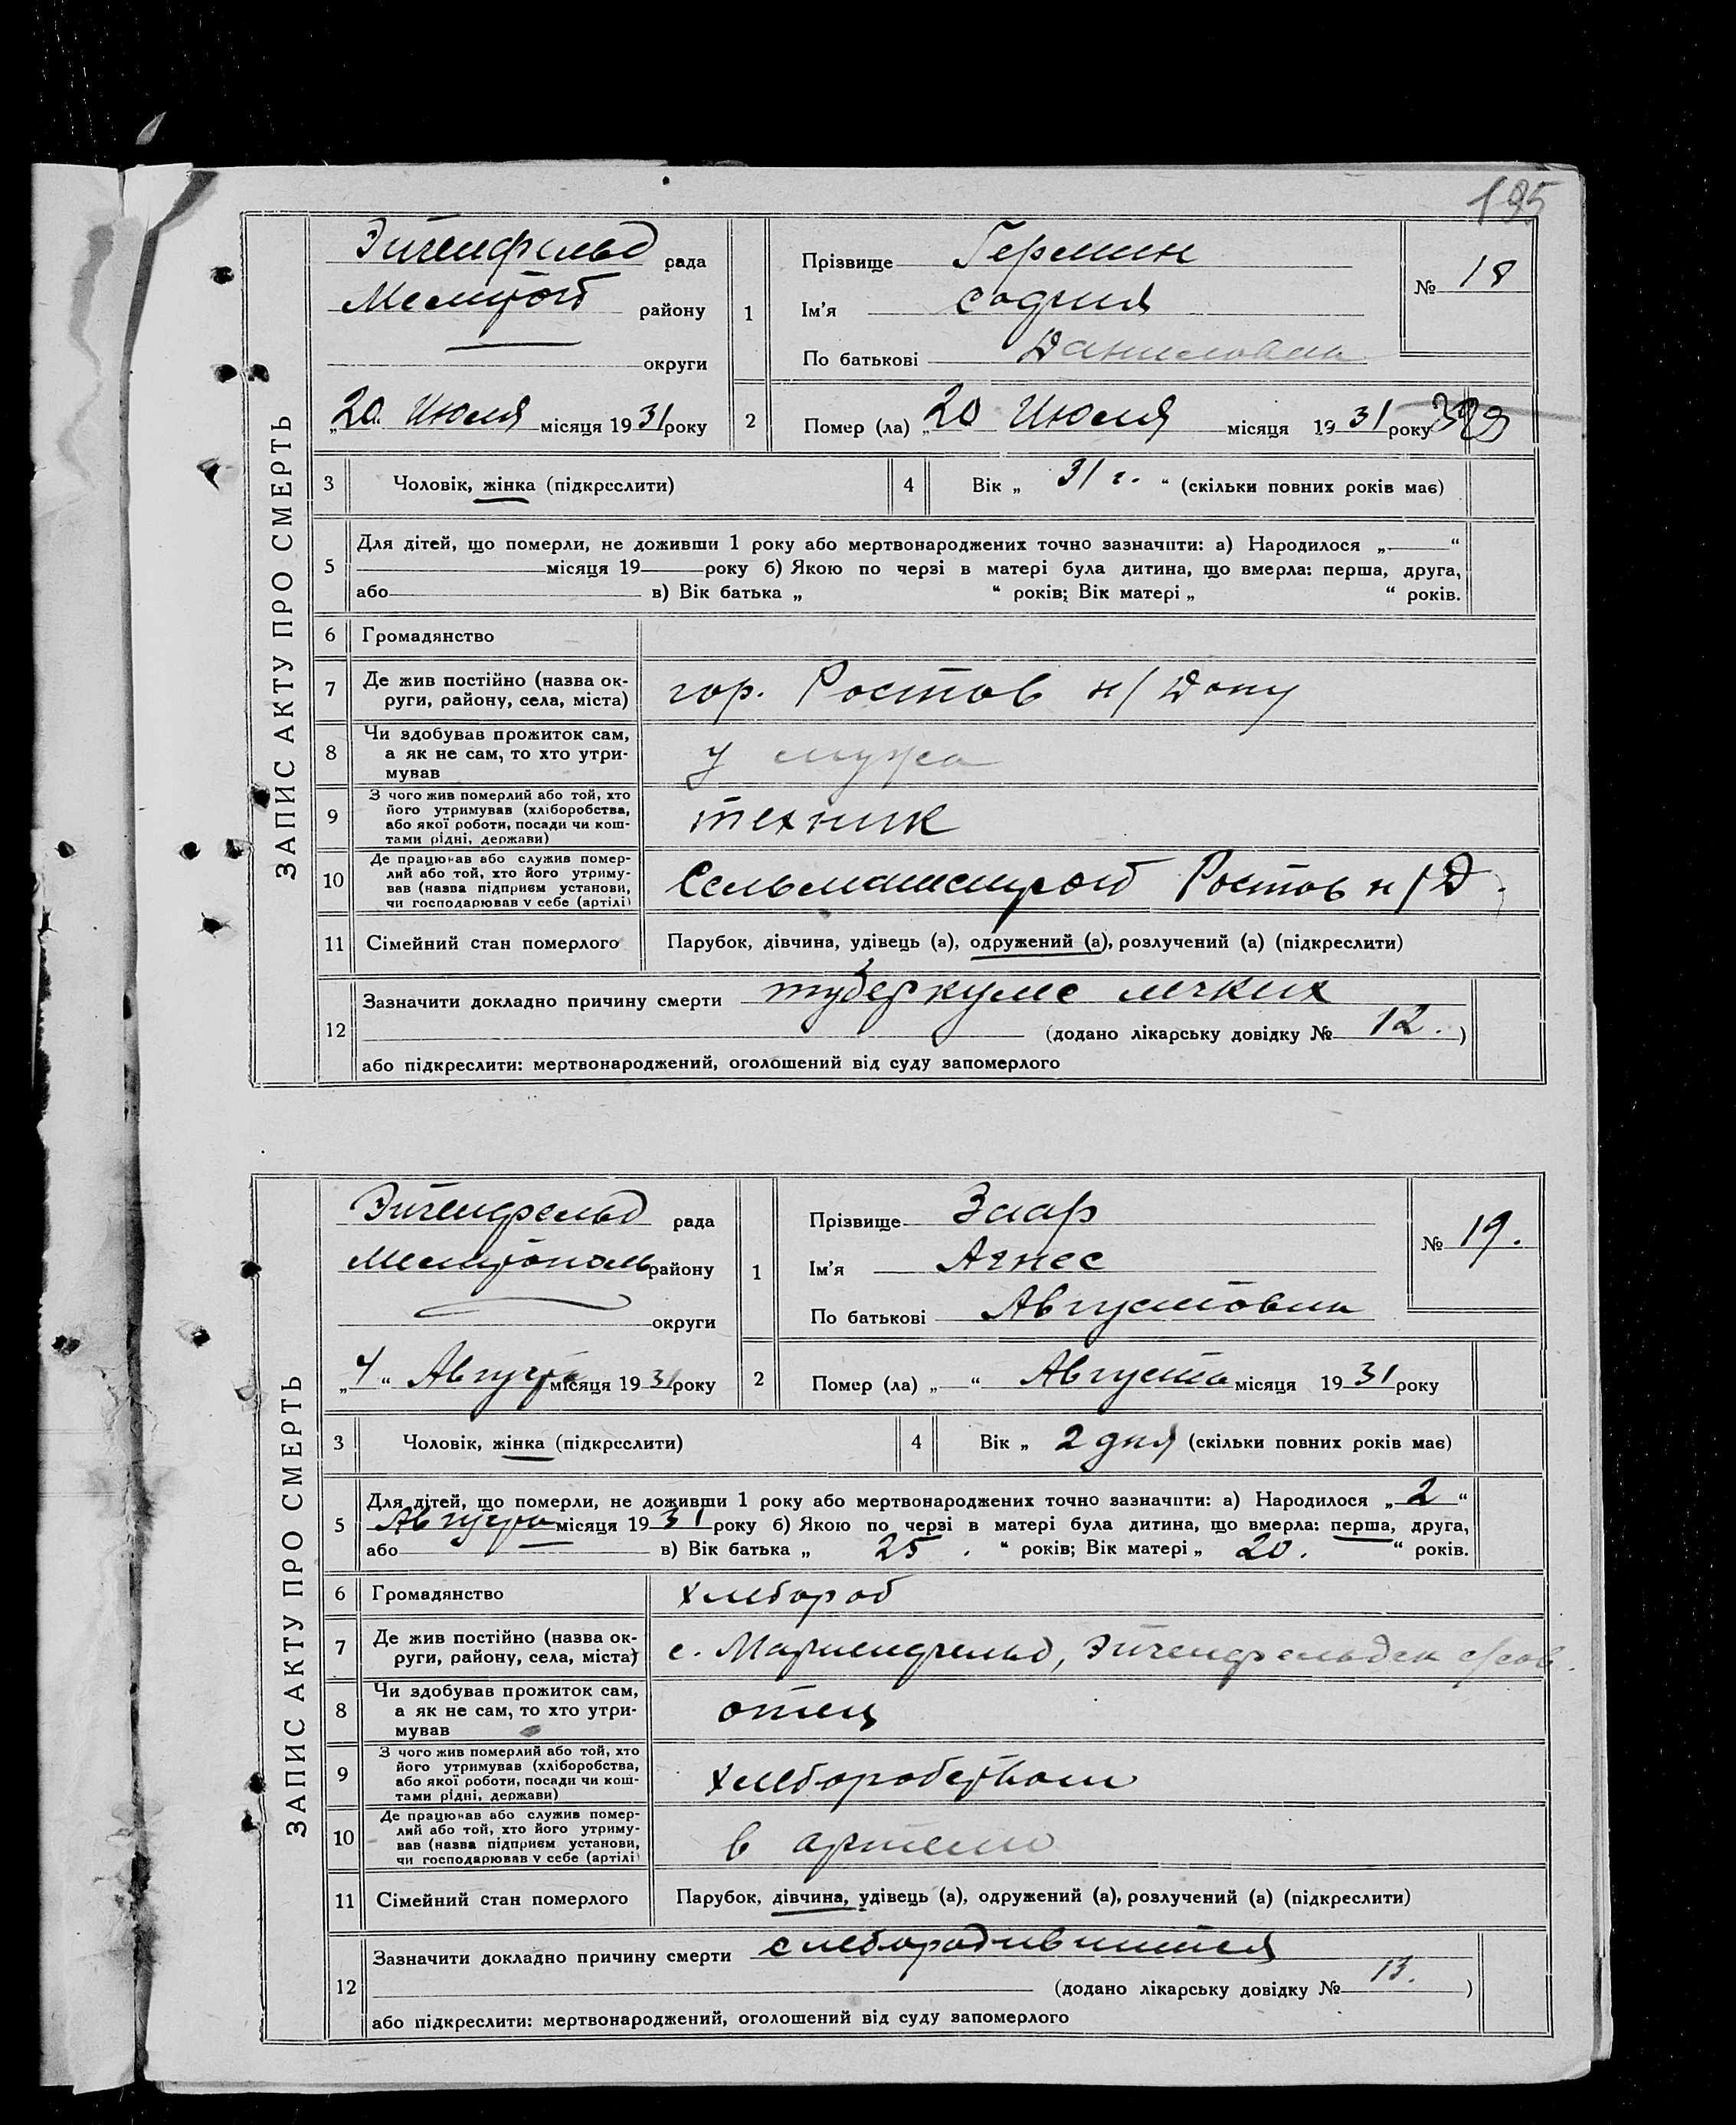 195
ЗАПИС АКТУ ПРО СМЕРТЬ
Эйгенфельд рада
Мелитоп району
округи
„20“ Июля місяця 1931 року
1
Прізвище Гермин
Ім'я София
По батькові Даниловна
№ 18
2 Помер (ла) „20 Июля місяця 1931 року
3 Чоловік, жінка (підкреслити)
4 Вік „ 31 г. “ (скільки повних років має)
5 Для дітей, що померли, не доживши 1 року або мертвонароджених точно зазначити: а) Народилося „ “
місяця 19 року б) Якою по черзі в матері була дитина, що вмерла: перша, друга,
або в) Вік батька „ “ років; Вік матері „ “ років.
6 Громадянство
7 Де жив постійно (назва ок-
руги, району, села, міста)
гор. Ростов н/Дону
8 Чи здобував прожиток сам,
а як не сам, то хто утри-
мував
у мужа
9 З чого жив померлий або той, хто
його утримував (хліборобства,
або якої роботи, посади чи кош-
тами рідні, держави)
техник
10 Де працював або служив помер-
лий або той, хто його утриму-
вав (назва підприєм установи,
чи господарював у себе (артілі)
Сельмашстрой Ростов н/Д.
11 Сімейний стан померлого Парубок, дівчина, удівець (а), одружений (а), розлучений (а) (підкреслити)
12 Зазначити докладно причину смерти туберкулс легких
(додано лікарську довідку № 12. )
або підкреслити: мертвонароджений, оголошений від суду запомерлого
ЗАПИС АКТУ ПРО СМЕРТЬ
Эйгенфельд рада
Мелитополь району
округи
„4“ Августа місяця 1931 року
1
Прізвище Заар
Ім'я Агнес
По батькові Августовна
№ 19.
2 Помер (ла) „ “ Августа місяця 1931 року
3 Чоловік, жінка (підкреслити)
4 Вік „ 2 дня (скільки повних років має)
5 Для дітей, що померли, не доживши 1 року або мертвонароджених точно зазначити: а) Народилося „2“
Августа місяця 1931 року б) Якою по черзі в матері була дитина, що вмерла: перша, друга,
або в) Вік батька „ 25. “ років; Вік матері „ 20. “ років.
6 Громадянство хлебороб
7 Де жив постійно (назва ок-
руги, району, села, міста)
с. Мариенфельд, Эйгенфельдск с/сов.
8 Чи здобував прожиток сам,
а як не сам, то хто утри-
мував
отец
9 З чого жив померлий або той, хто
його утримував (хліборобства,
або якої роботи, посади чи кош-
тами рідні, держави)
хлеборобством
10 Де працював або служив помер-
лий або той, хто його утриму-
вав (назва підприєм установи,
чи господарював у себе (артілі)
в артели
11 Сімейний стан померлого Парубок, дівчина, удівець (а), одружений (а), розлучений (а) (підкреслити)
12 Зазначити докладно причину смерти слебородившийся
(додано лікарську довідку № 13. )
або підкреслити: мертвонароджений, оголошений від суду запомерлого